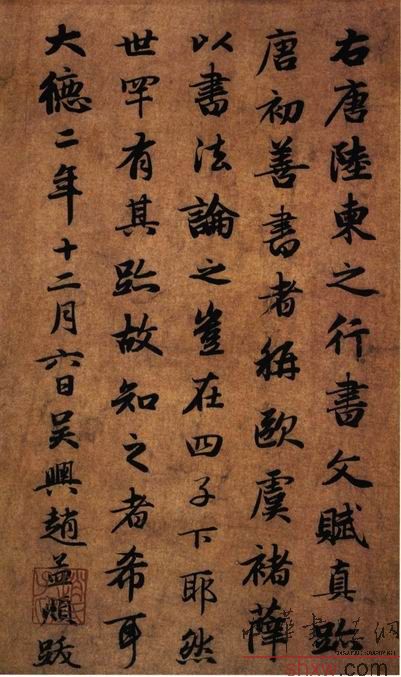 右唐陸東之行書文賦真跡
唐初善書者稱歐虞褚薛
以書法論之豈在四子下耶然
世罕有其跡故知之者希耳
大德二年十二月六日吴興趙孟頫跋
中華書法網
shxw.com